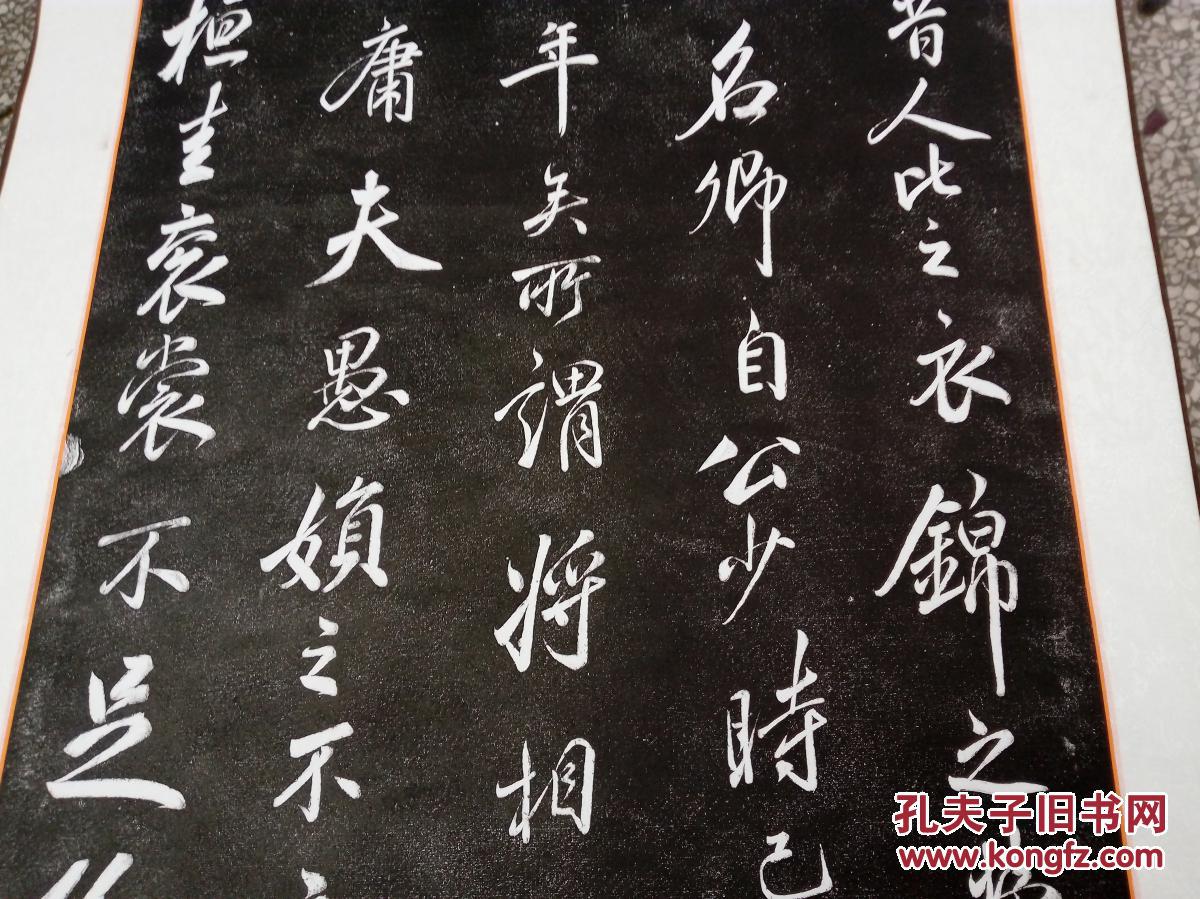 昔人比之衣錦之
名卿自公少時已
年矣所謂將相
庸夫愚婦之不
桓圭袞裳不足
孔夫子旧书网
www.kongfz.com